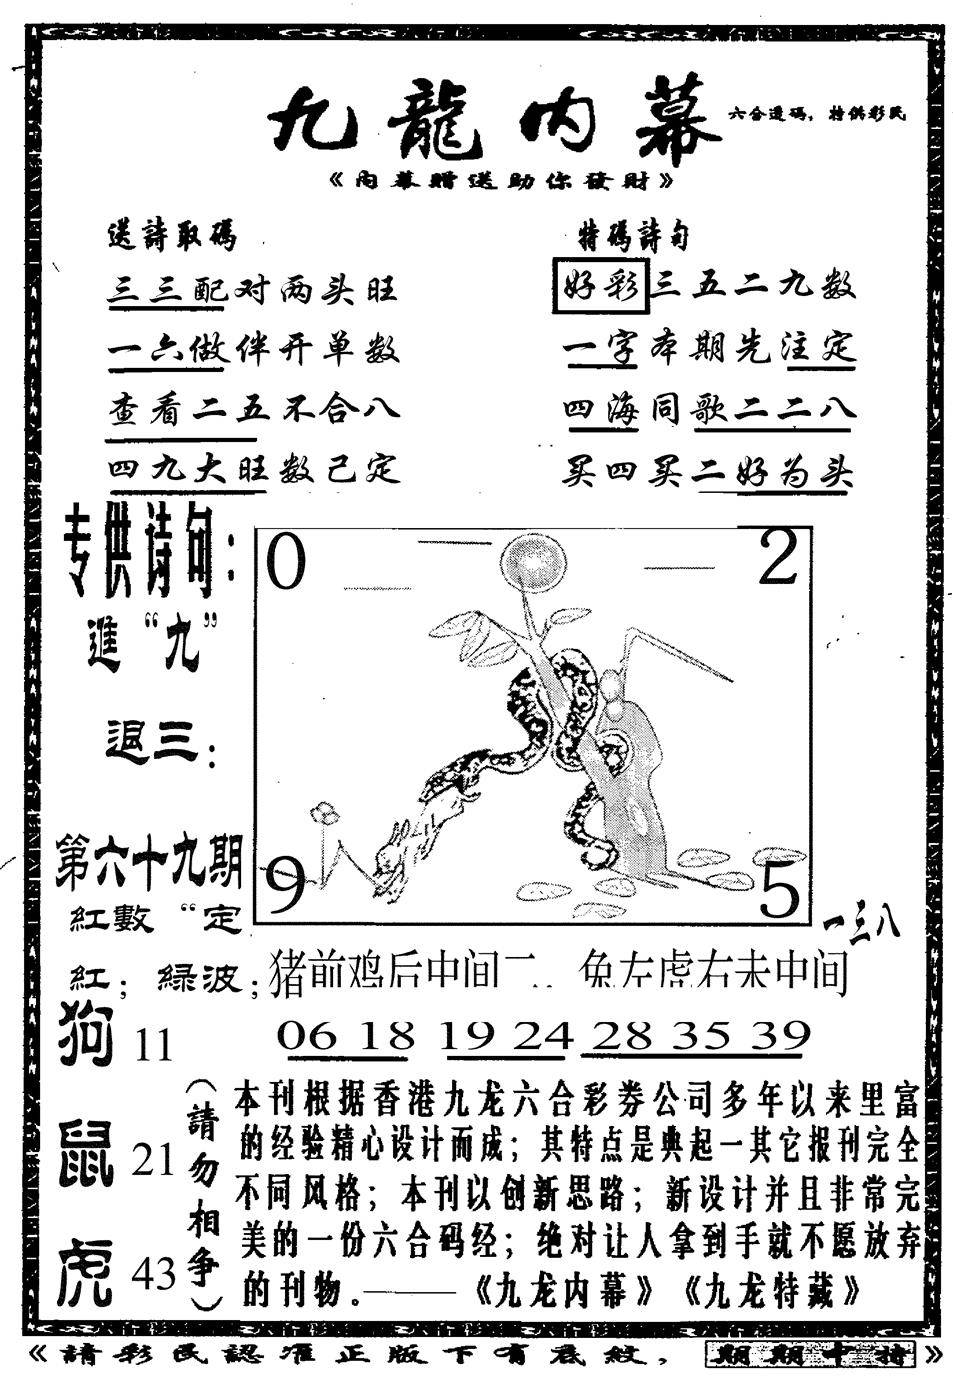 九龍内幕
六合透码，特供彩民
《内幕赠送助你發財》
送詩取碼
三三配对两头旺
一六做伴开单数
查看二五不合八
四九大旺数己定
特碼詩句
好彩三五二九数
一字本期先注定
四海同歌二二八
买四买二好为头
专供诗句：
進“九”
退三：
第六十九期
紅數“定
紅；緑波；
狗 11
鼠 21
虎 43
（請勿相争）
0 2
9 5
一三八
猪前鸡后中间二 兔左虎右未中间
06 18 19 24 28 35 39
本刊根据香港九龙六合彩券公司多年以来里富
的经验精心设计而成；其特点是典起一其它报刊完全
不同风格；本刊以创新思路；新设计并且非常完
美的一份六合码经；绝对让人拿到手就不愿放弃
的刊物。——《九龙内幕》《九龙特藏》
《請彩民認准正版下有底紋，期期中特》